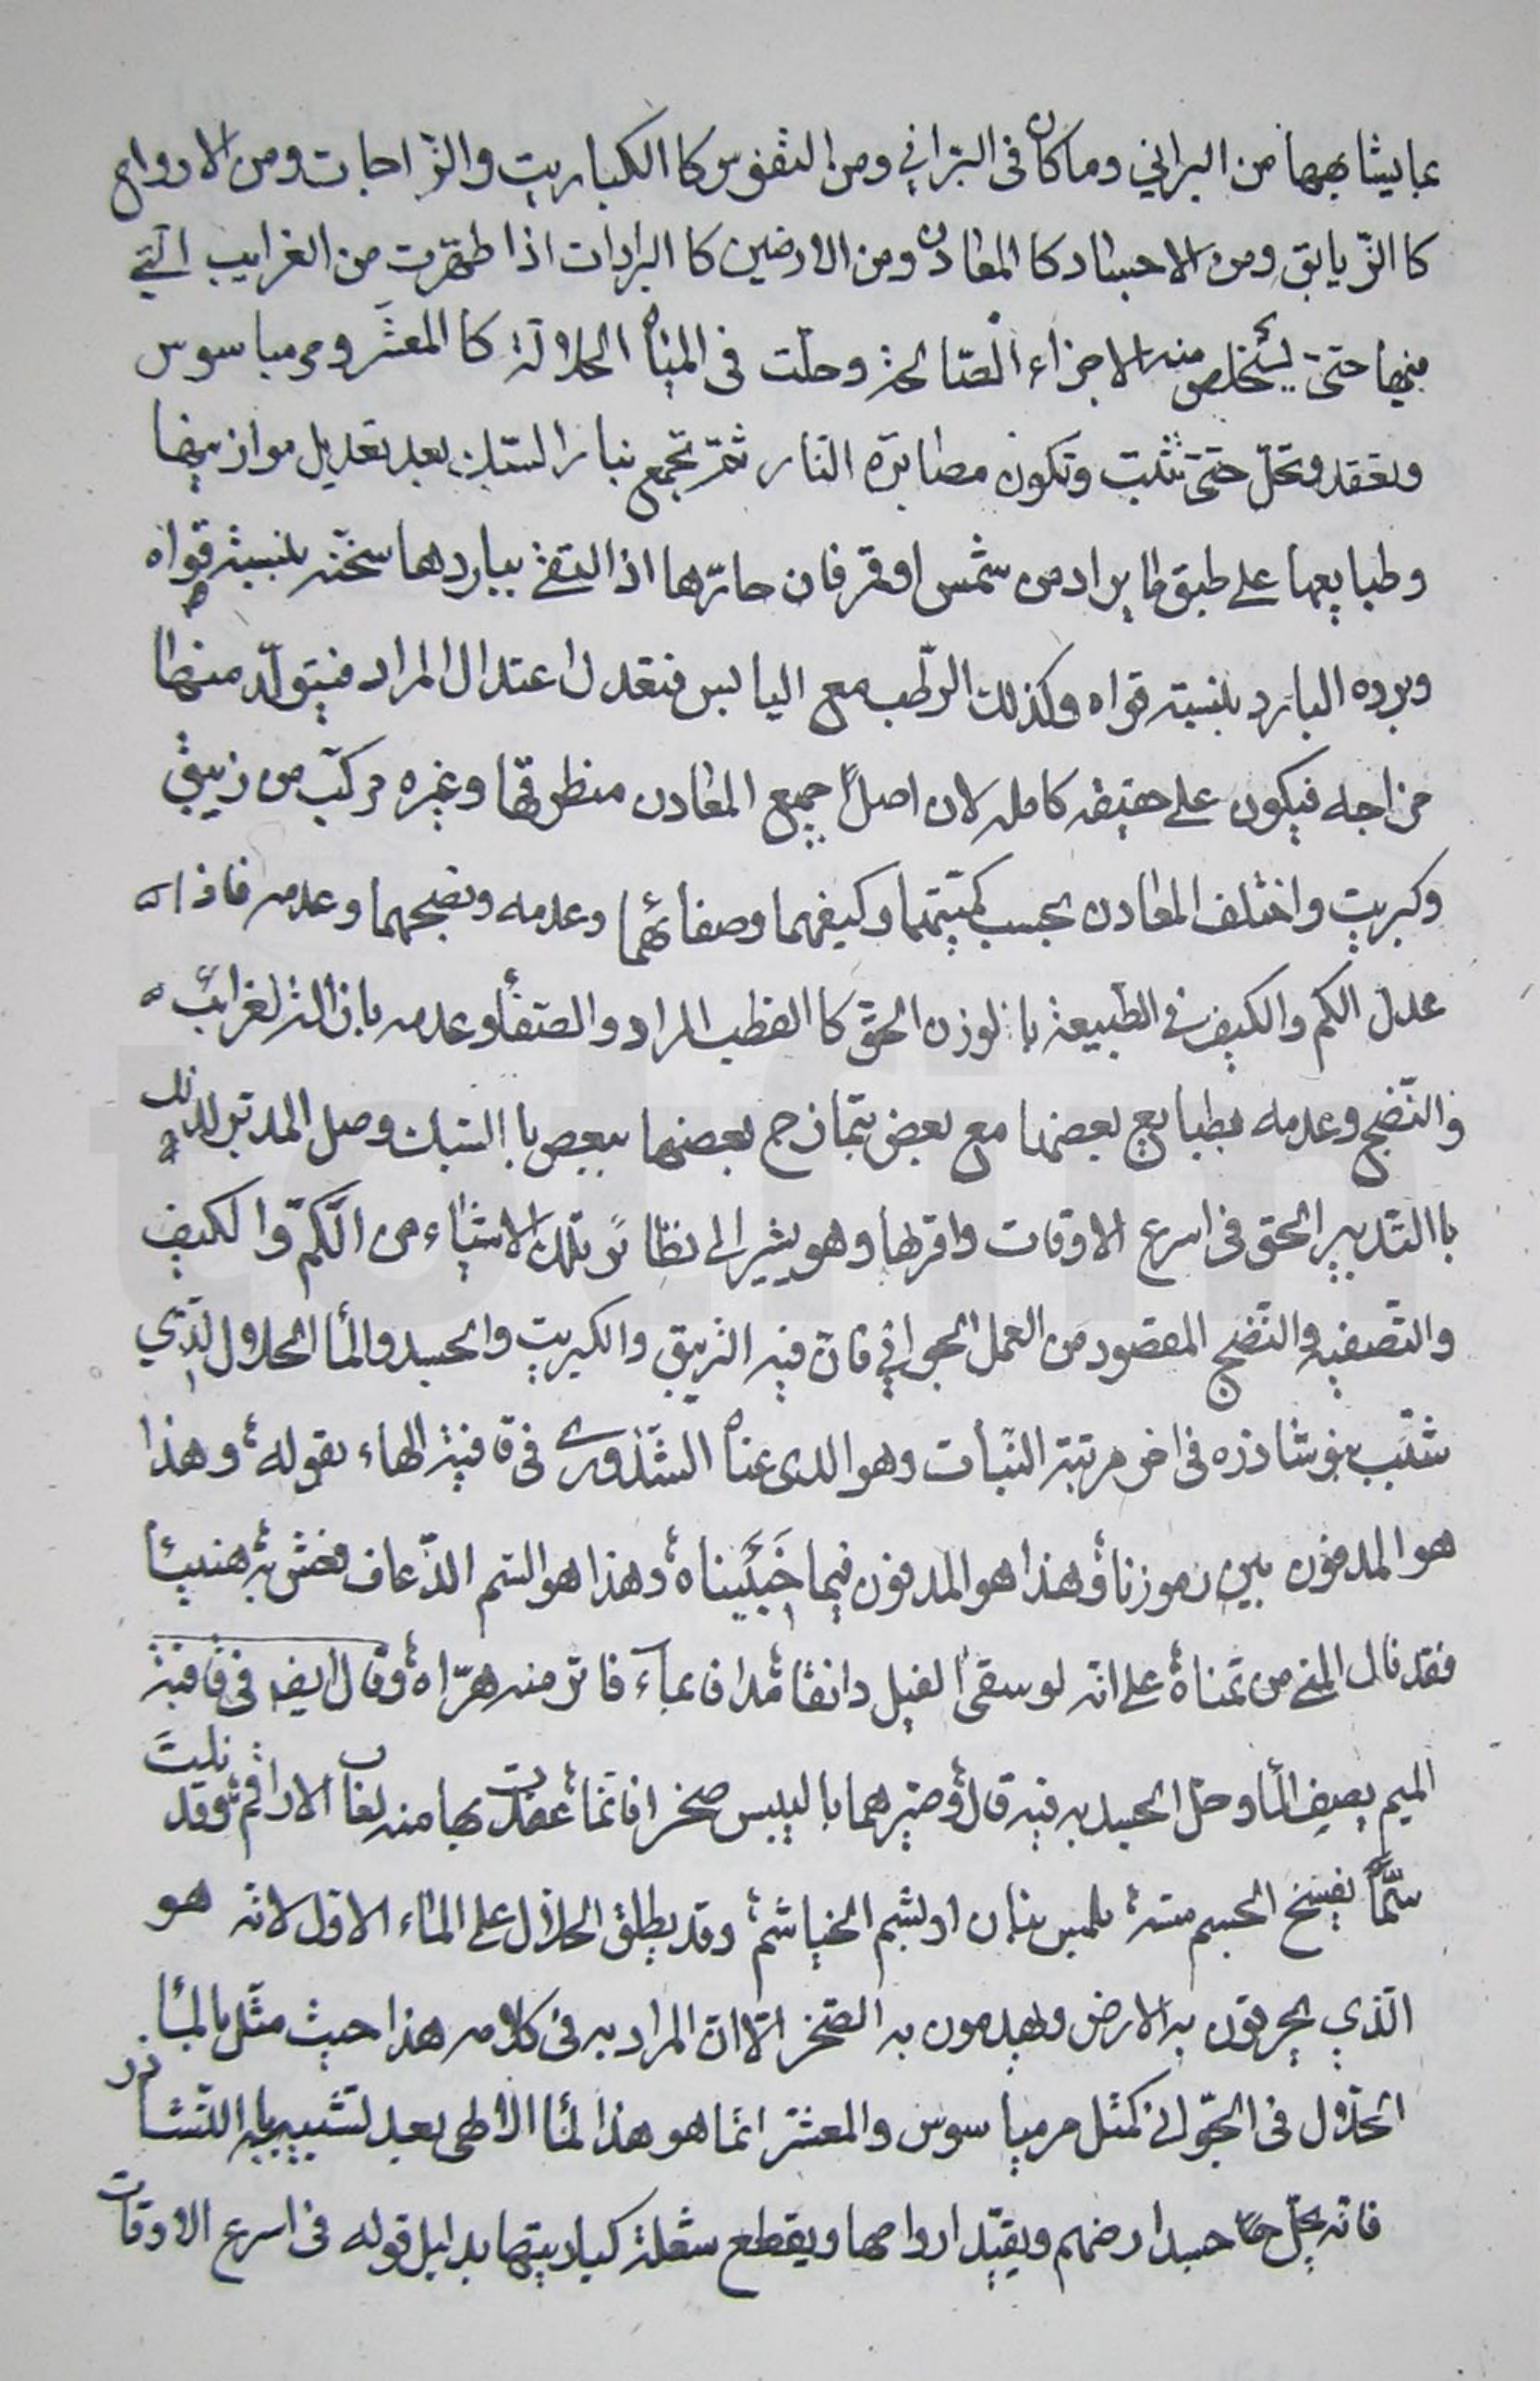 بما يشابهها من البراني وما كان فى البرّاني ومن النفوس كا الكباريت والزّاجات ومن الارواح
كا الزّيابق ومن الاجساد كا المعادن ومن الارضين كا البرادات اذا طهّرت من الغرايب التي
فيها حتىّ يستخلص منه الاجزاء الصّالحة وحلّت فى المياه الحلالة كا المعشّر ومرمياسوس
وتعقد وتحلّ حتىّ تثبت وتكون مصابرة النار ثمّ تجمع بنار السّبك بعد تعديل موازينها
وطبايعها على طبق ما يراد من شمس او قمر فان حارّها اذا التقى بباردها سخّنه بنسبة قواه
وبرده البارد بنسبته قواه وكذلك الرّطب مع اليابس فتعدل اعتدال المراد فيتولّد منهما
مزاجه فيكون على حقيقه كامله لان اصل جميع المعادن منطرقها وغيره مركّب من زيبق
وكبريت واختلف المعادن بحسب كميّتهما وكيفهما وصفائهما وعدمه ونضجهما وعدمه فاذا
عدل الكم والكيف فى الطّبيعة با لوزن الحقّ كا القطب المراد والصّفا وعدمه بازالة لغرائب
والنّضج وعدمه بطبايع بعضها مع بعض بتمازج بعضها ببعض با السّبك وصل المدبّر لذلك
با التّدبير الحق فى اسرع الاوقات واقربها وهو يشير الى نظائر تلك الاشياء من الكمّ والكيف
والتّصفيه والنّضج المقصود من العمل الجوانى فان فيه الزيبق والكبريت والجسد والما الحلال الّذي
شبّب بنوشاذره فى اخر مرتبة النّبات وهو الذى عناه الشّذورى فى قافية الهاء بقوله وهذا
هو المدفون بين رموزنا وهذا هو المدفون فيما خَبَيّناه وهذا هو السّم الذّعاف فعش به هنيئاً
فقد نال المنى من تمناه على انّه لو سقى الفيل دانقا مدافا بماء فاتر منه هرّاه وقال ايضا فى قافية
الميم يصف الما وحل الجسد به فيه قال وصيّرهما با اليبس صخرا فانّما عقدت بها منه لعاب الاراقم وقد نلت
سّماً يفسخ الجسم مسّه بلمس بنان او بشم الخياشم وقد يطلق الحلال على الماء الاول لانّه هو
الّذي يحرقون به الارض ويهدمون به الصّخر الّا انّ المراد به فى كلامه هذا حيث مثّل بالما
الحلال فى الجوّانى كمثل مرمياسوس والمعشر انّما هو هذا لما الالهى بعد تشبيبه با النّشادر
فانّه يحلّ جسد ارضهم ويقيّد ارواحها ويقطع شعلة كباريتها بدليل قوله فى اسرع الاوقات